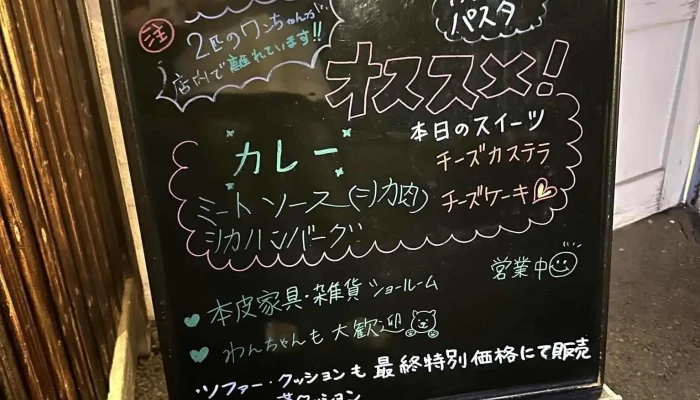 注
2匹のワンちゃんが、
店内で離れています!!
パスタ
オススメ!
本日のスイーツ
チーズカステラ
チーズケーキ
カレー
ミートソース(シカ肉)
シカハンバーグ
営業中
本皮家具・雑貨 ショールーム
わんちゃんも大歓迎
・ソファー・クッションも最終特別価格にて販売
クッション